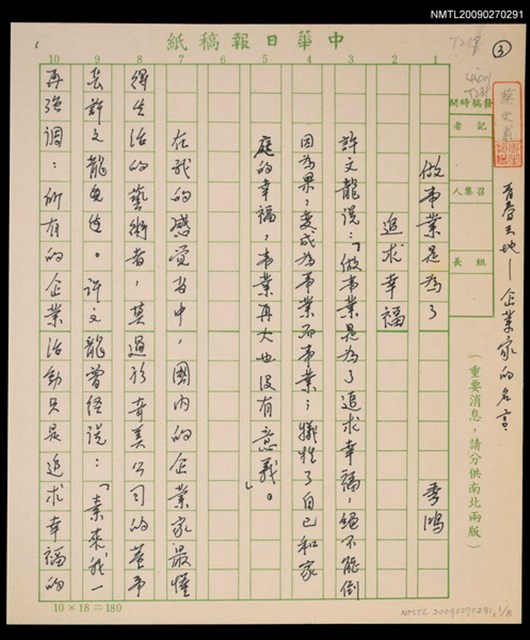 NMTL20090270291
中華日報稿紙
③
T281
發稿時間
記者
召集人
組長
蔡文甫
青春天地—企業家的名言
(重要消息,請分供南北兩版)
1
2
3
4
5
6
7
8
9
10
做事業是為了
追求幸福
季鴻
許文龍說:「做事業是為了追求幸福,絕不能倒
因為果,變成為事業而事業;犧牲了自己和家
庭的幸福,事業再大也沒有意義。」
在我的感覺當中,國內的企業家最懂
得生活的藝術者,莫過於奇美公司的董事
長許文龍先生。許文龍曾經說:「素來我一
再強調:所有的企業活動只是追求幸福的
10×18=180
NMTL 20090270291, 1/8